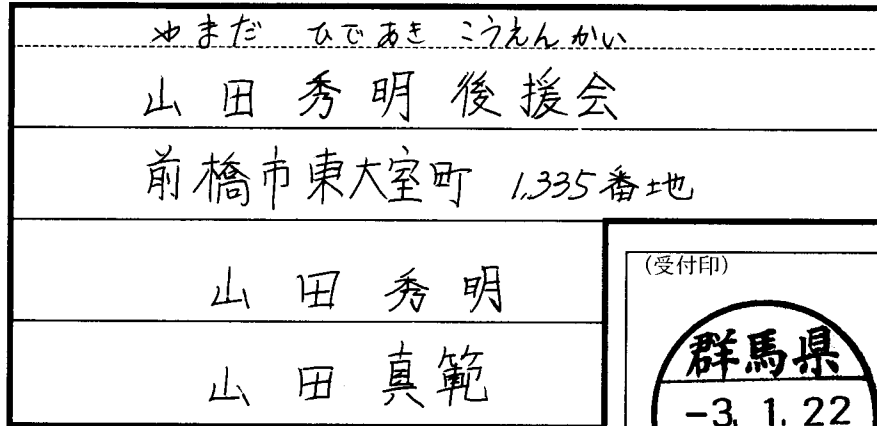 やまだ ひであき こうえんかい
山田秀明後援会
前橋市東大室町 1,335番地
山田秀明
山田真範
(受付印)
群馬県
-3.1.22